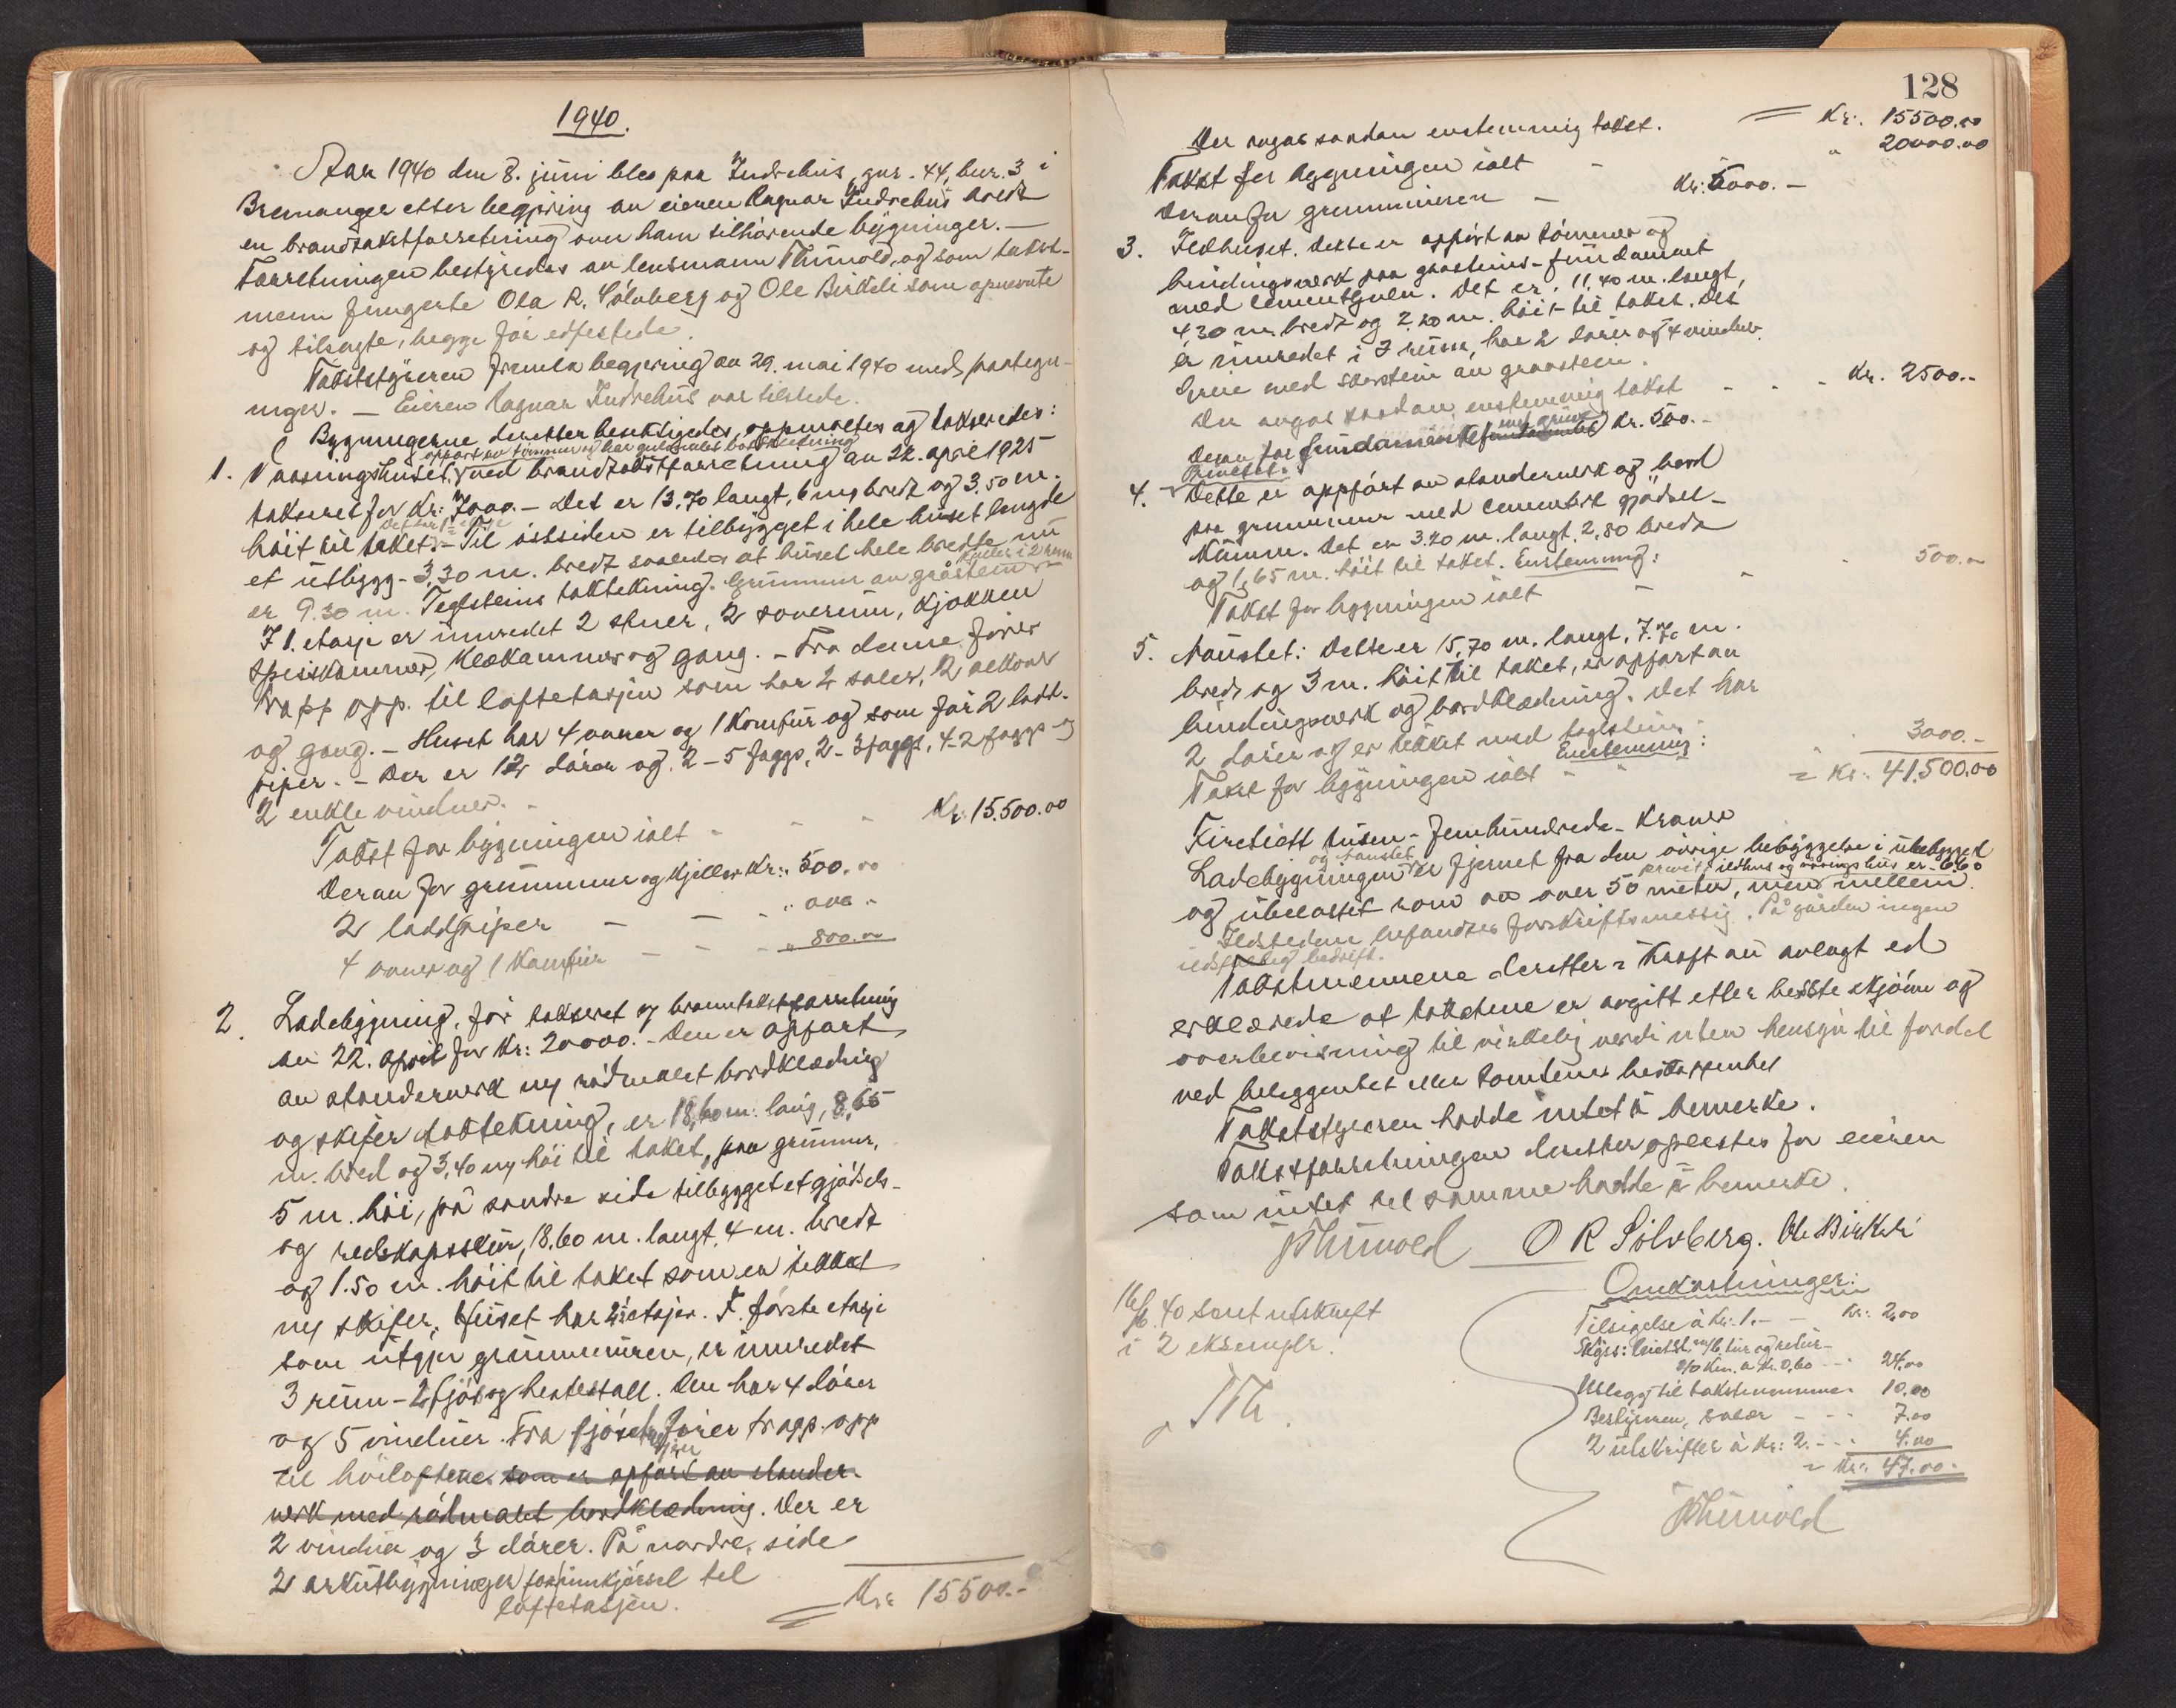 1940.
Aar 1940 den 8. juni blev paa Indrehus, gnr. 44, bnr. 3 i
Bremanger etter begjæring av eieren Ragnar Indrehus holdt
en brandtakstforretning over ham tilhørende bygninger. —
Forretningen bestyredes av lensmann Thunold, og som takst-
menn fungerte Ola R. Sölvberg og Ole Birkeli som opnevnte
og tilsagte, begge før edfestede.
Takststyreren fremla begjæring av 29. mai 1940 med paategn-
inger. — Eieren Ragnar Indrehus var tilstede.
Bygningerne deretter besiktigedes, oppmaaltes og takseredes:
opført av tømmer og har gulmalet bordkledning
1. Vaaningshuset, ved brandtakstforretning av 22. april 1925
taksert for kr: 7000.- Det er 13.70 langt, 6 m bredt og 3.50 m.
høit til taket. - Til östsiden er tilbygget i hele huset lengde
et utbygg - 3,30 m. bredt saaledes at huset hele bredde nu
er 9.30 m. Teglsteins taktekning. Grunnmur av gråstein
I 1. etasje er innredet 2 stuer, 2 soverum, kjökken
spiskammer, klækammer og gang. - Fra denne förer
trapp opp. til loftetasjen som har 2 saler, 2 alkover
og gang. - Huset har 4 ovner og 1 komfur og som før 2 ladd-
piper. - Der er 12 dörer og 2 - 5 faggs, 2 - 3 faggs, 4 - 2 faggs og
2 enkle vinduer. -
Takst for bygningen ialt - - - Kr. 15.500.00
Derav for grunnmur og kjeller Kr:. 500.00
2 laddpiper — — -
4 ovner og 1 komfur — - - " 800.00
2. Ladebygning, før taksert ved branntakstforretning
av 22. april for Kr: 20000. - Den er opført
av standerverk med rødmalet bordklædning
og skifer taktekning, er 18,60 m. lang, 8,65
m. bred og 3,40 m høi til taket, paa grunmur,
5 m. høi, på sondre side tilbygget et gjødsels-
og redskapsskur, 18.60 m. langt, 4 m. bredt
og 1.50 m. høit til taket som er tekket
med skifer. Huset har 2 etasjer. I første etasje
som utgjør grunnmuren, er innredet
3 rum - 2 fjøs og hestestall. Den har 4 dører
og 5 vinduer. Fra fjöset förer trapp opp
til höiloftene som er opført av stander-
verk med rødmalet bordklædning. Der er
2 vinduer og 3 dører. På nordre side
2 arkutbygninger for innkjørsel til
loftetasjen.
Kr: 15500.-
128
= Kr. 15500.00
Der avgas saadan enstemmig takst.
Takst for bygningen ialt - " 20000.00
Derav for grunnmuren — Kr: 5000. -
3. Ildhuset. Dette er oppført av tömmer og
bindingsverk paa graasteins - fundament
med cementgulv. Det er: 11,40 m. langt,
4,30 m. bredt og 2.20 m. höit til taket. Det
er innredet i 3 rum, har 2 dører og 4 vinduer.
Grue med skorstein av graastein.
Der avgas saadan enstemmig takst - - - Kr. 2500.-
Derav for fundamentet Kr. 500.-
Privetet.
4. Dette er oppført av standerverk og bord
paa grunnmur med cementert gjødsel-
kumm. Det er 3.20 m. langt, 2,80 bredt
og 1,65 m. höit til taket. Enstemmig:
Takst for bygningen ialt - - - 500.-
5. Naustet: Dette er 15,70 m. langt, 7.70 m.
bredt og 3 m. höit til taket, er oppført av
bindingsverk og bordklædning. Det har
2 dörer og er tekket med taglstein.
Enstemmig:
Takst for bygningen ialt - - - 3000.-
= Kr. 41.500.00
Firetiett tusen - femhundrede - kroner
og naustet
Ladebygningen er fjernet fra den øvrige bebyggelse i ubebygget
privet, ildhus og våningshus er 6.60
og übelastet rom av over 50 meter, men mellem
Ildstedene befandtes forskriftsmessig. På gården ingen
ildsfarlig bedrift.
Takstmennene deretter i kraft av avlagt ed
erklærede at takstene er avgitt etter beste skjønn og
overbevisning til virkelig verdi uten hensyn til fordel
ved beliggenhet eller tomtens beskaffenhet
Takststyreren hadde intet å bemerke.
Takstforretningen deretter oplestes for eieren
som intet til samme hadde å bemerke.
Thunold O R Sölvberg. Ole Birkeli
16/6. 40 sendt utskrift
i 2 eksempl.
Th.
Omkostninger:
Tilsigelse à kr. 1. - - Kr: 2,00
Skyss: tur og retur -
à kr. 0,60 - - 24.00
Utlegg til takstmennene 10,00
Bestyreren, salær - - - 7.00
2 utskrifter à kr: 2. - - 4.00
= Kr: 47.00
Thunold